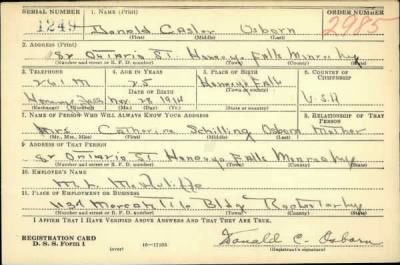 SERIAL NUMBER 1. NAME (Print) ORDER NUMBER
1249 Donald Casler Osborn 2985
(First) (Middle) (Last)
2. ADDRESS (Print)
Ontario St. Honeoye Falls Monroe NY
(Number and street or R. F. D. number) (Town) (County) (State)
3. TELEPHONE 4. AGE IN YEARS 5. PLACE OF BIRTH 6. COUNTRY OF CITIZENSHIP
261M 25 Honeoye Falls
DATE OF BIRTH
Honeoye Falls Nov. 28 1914 NY U.S.A
(Exchange) (Number) (Mo.) (Day) (Yr.) (State or country)
7. NAME OF PERSON WHO WILL ALWAYS KNOW YOUR ADDRESS 8. RELATIONSHIP OF THAT PERSON
Mrs. Catherine Schilling Osborn Mother
(Mr., Mrs., Miss) (First) (Middle) (Last)
9. ADDRESS OF THAT PERSON
Ontario St Honeoye Falls Monroe NY
(Number and street or R. F. D. number) (Town) (County) (State)
10. EMPLOYER'S NAME
M.
11. PLACE OF EMPLOYMENT OR BUSINESS
Mercantile Bldg Rochester NY
(Number and street or R. F. D. number) (Town) (County) (State)
I AFFIRM THAT I HAVE VERIFIED ABOVE ANSWERS AND THAT THEY ARE TRUE.
REGISTRATION CARD
D. S. S. Form 1 (over) 16—17105 Donald C. Osborn
(Registrant's signature)